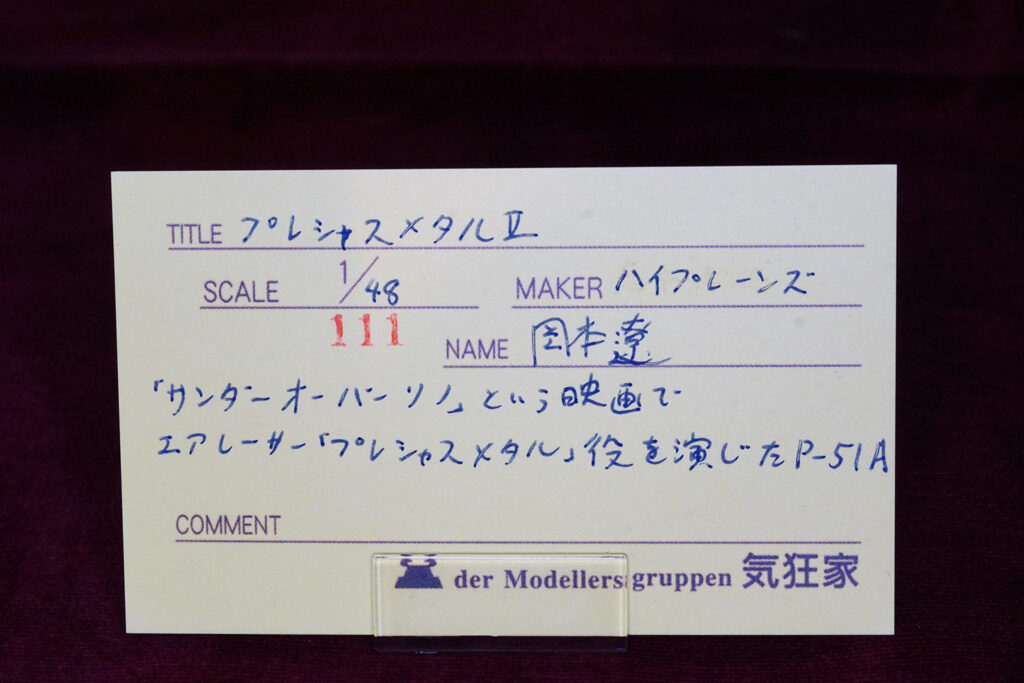 TITLE プレシャスメタルⅡ
SCALE 1/48 MAKER ハイプレーンズ
111
NAME 岡本遼
「サンダーオーバーリノ」という映画で
エアレーサー「プレシャスメタル」役を演じたP-51A
COMMENT
der Modellers gruppen 気狂家